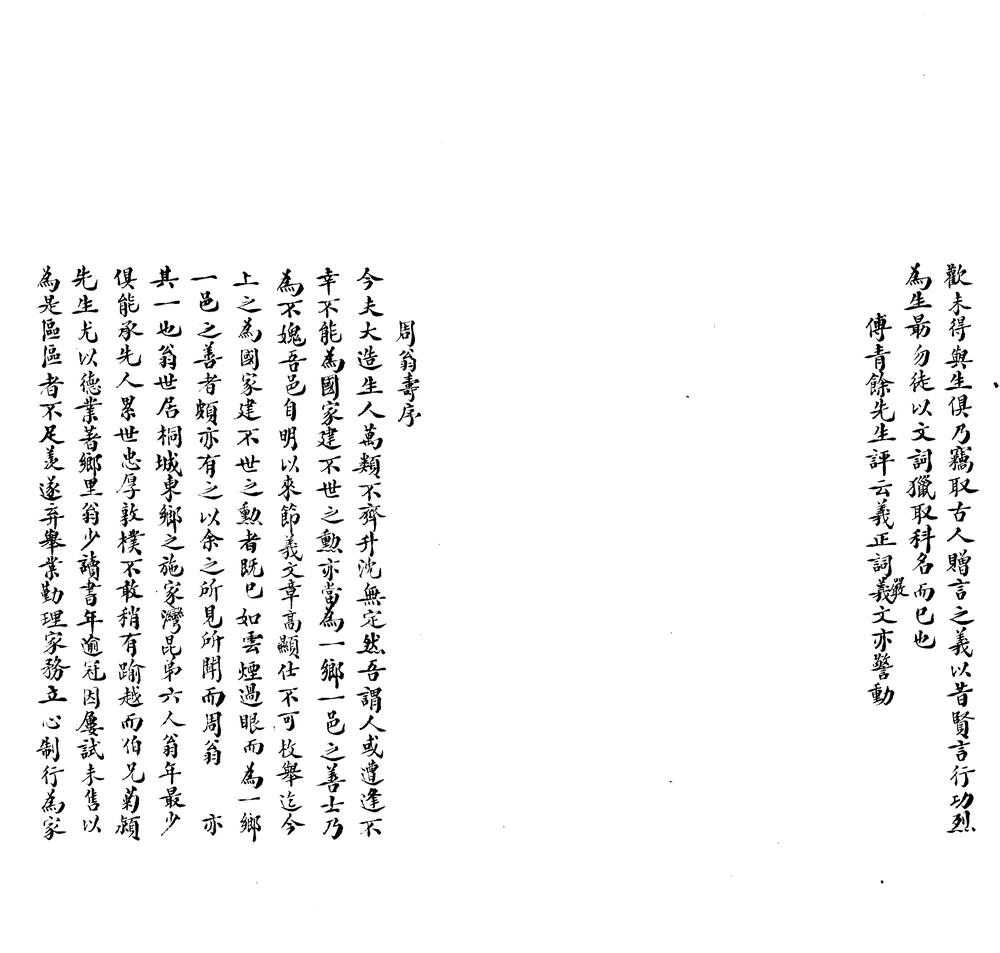 歡未得與生俱乃竊取古人贈言之義以昔賢言行功烈
為生勗勿徒以文詞獵取科名而已也
傅青餘先生評云義正詞嚴義文亦警動
周翁壽序
今夫大造生人萬類不齊升沈無定然吾謂人或遭逢不
幸不能為國家建不世之勲亦當為一鄉一邑之善士乃
為不媿吾邑自明以來節義文章高顯仕不可枚舉迄今
上之為國家建不世之勲者既已如雲煙過眼而為一鄉
一邑之善者頗亦有之以余之所見所聞而周翁 亦
其一也翁世居桐城東鄉之施家灣昆弟六人翁年最少
俱能承先人累世忠厚敦樸不敢稍有踰越而伯兄菊潁
先生尤以德業著鄉里翁少讀書年逾冠因屢試未售以
為是區區者不足羨遂弃舉業勤理家務立心制行為家